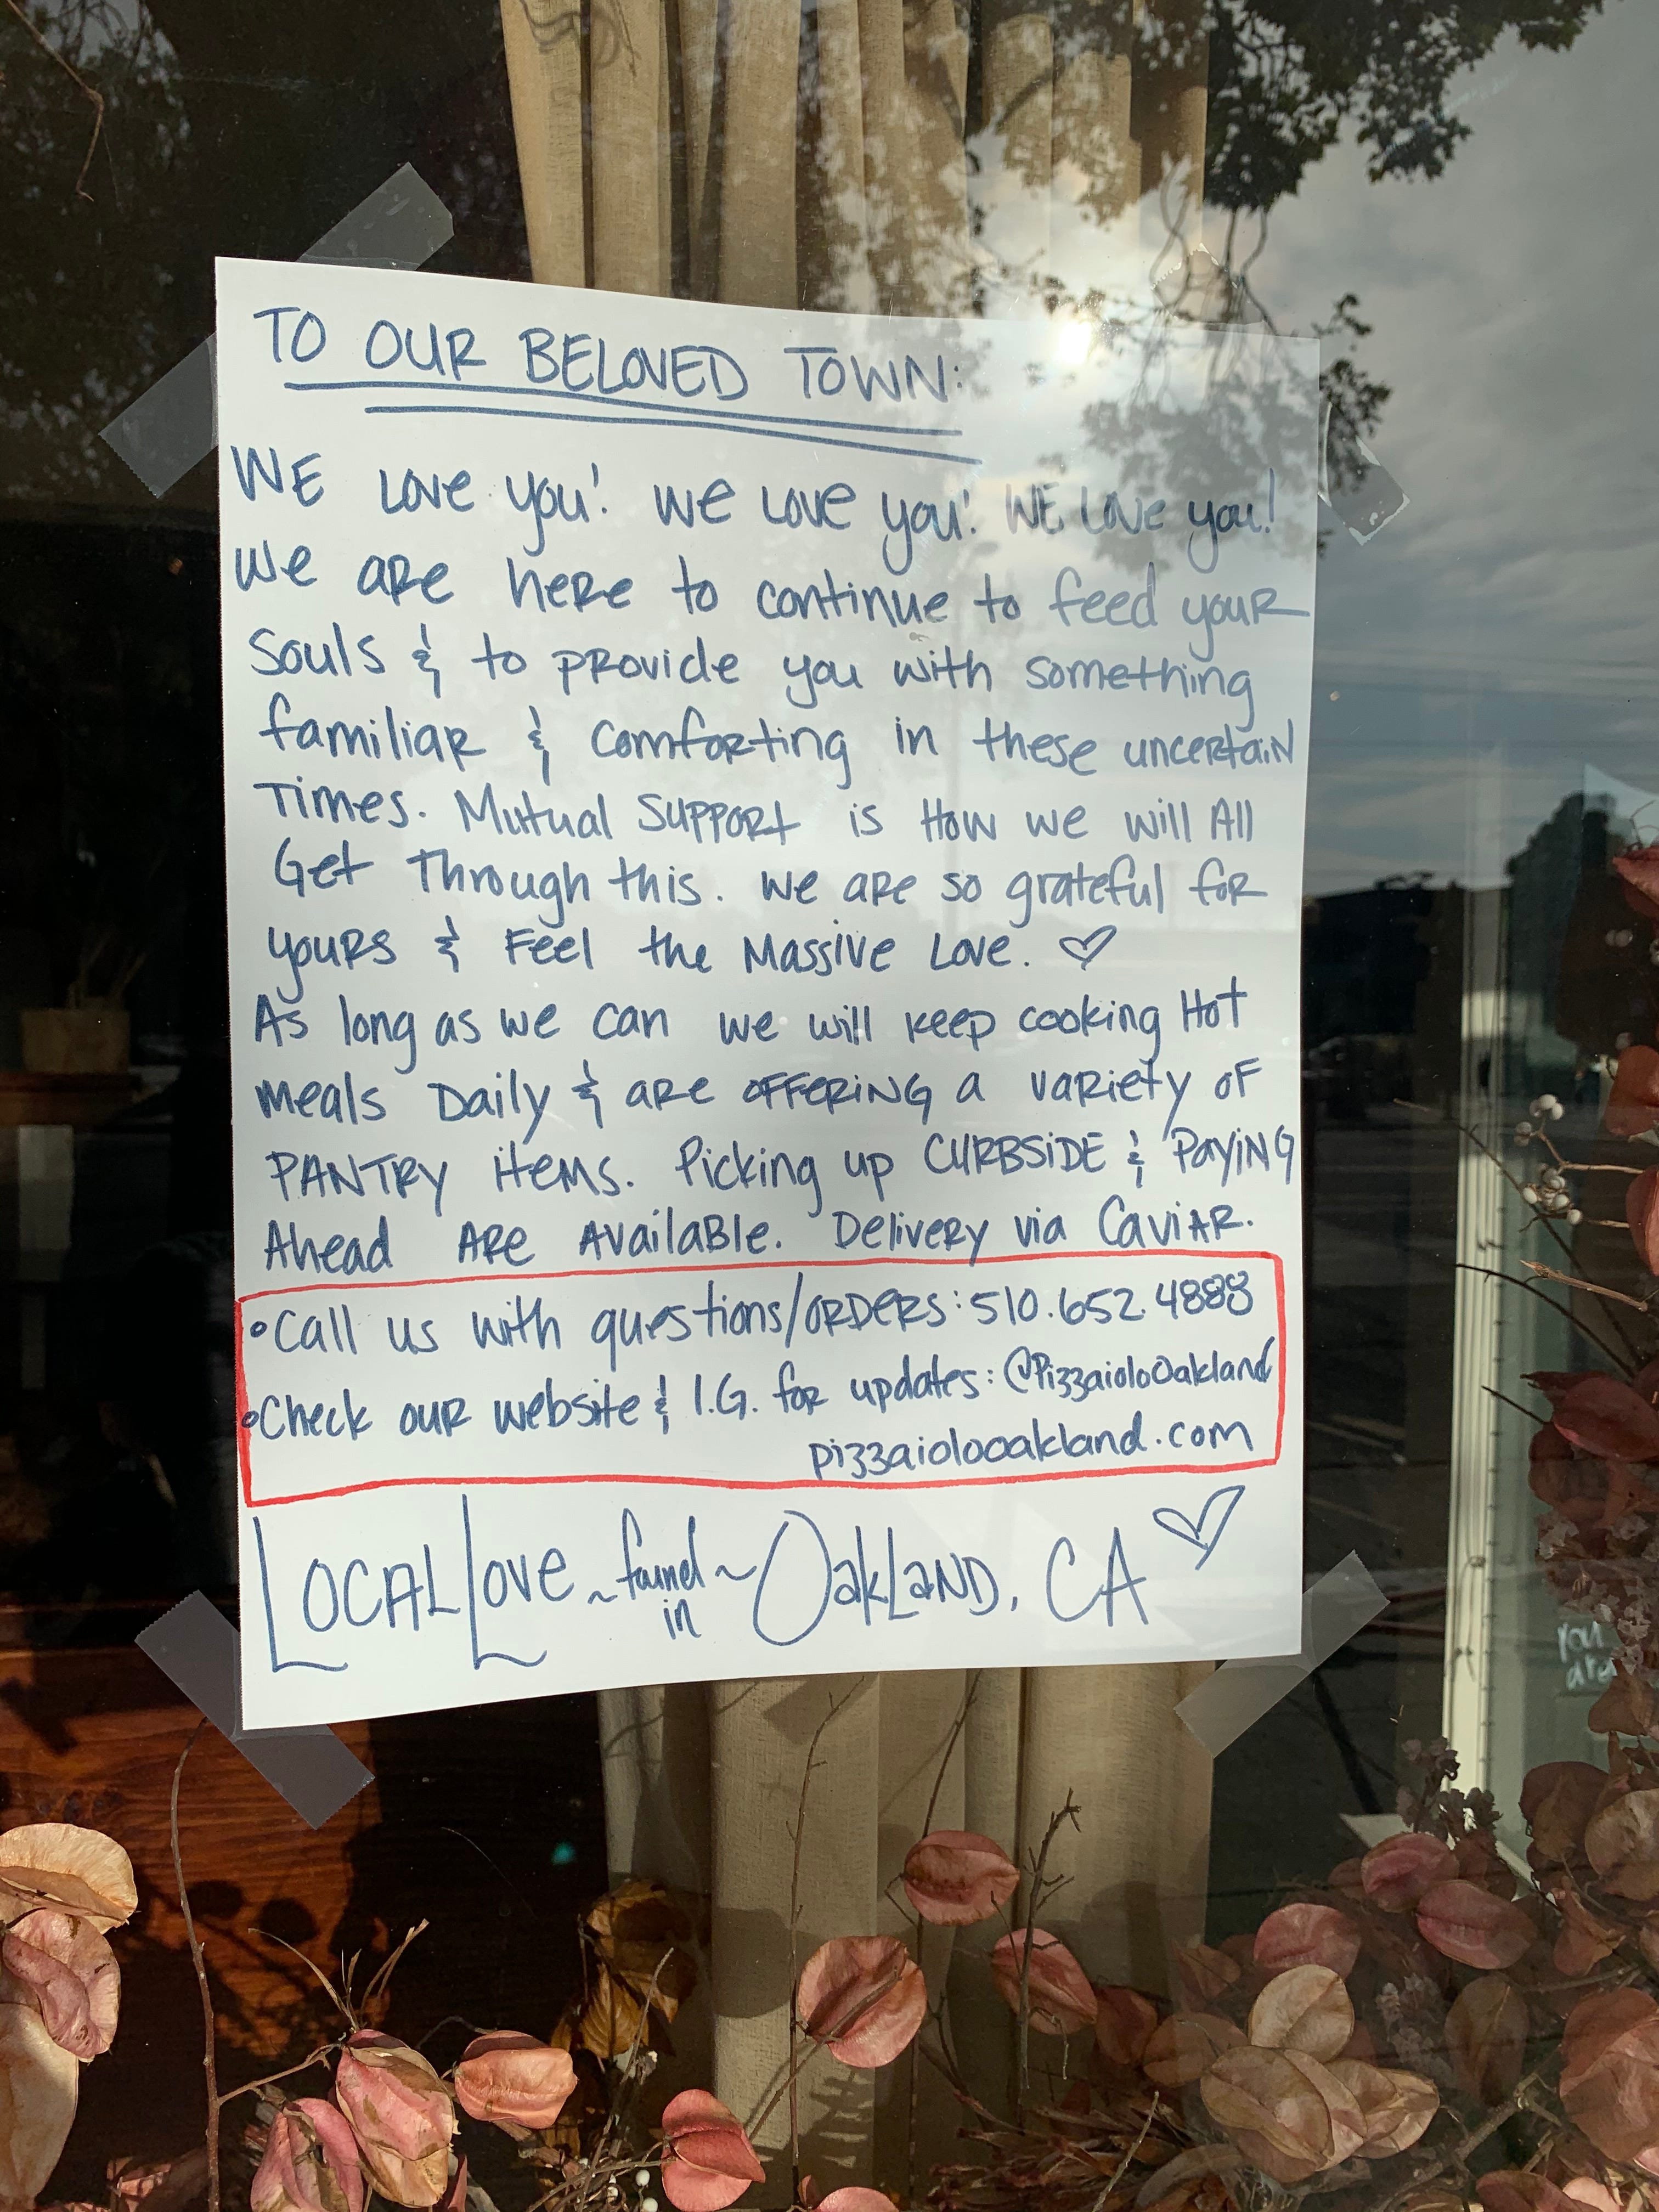 TO OUR BELOVED TOWN:
WE Love you! We Love you! WE Love you!
We are here to continue to feed your
Souls & to provide you with something
familiar & Comforting in these uncertain
Times. Mutual Support is How we will All
Get Through this. We are so grateful for
yours & Feel the Massive Love. ♡
As long as we can we will keep cooking Hot
meals Daily & are OFFERING a variety of
PANTRY items. Picking up CURBSIDE & PAYING
Ahead ARe Available. Delivery via Caviar.
•Call us with questions/ORDERS: 510.652.4888
•Check our website & I.G. for updates: @PizzaioloOakland
pizzaiolooakland.com
Local Love ~found~ Oakland, CA ♡
in
You
are